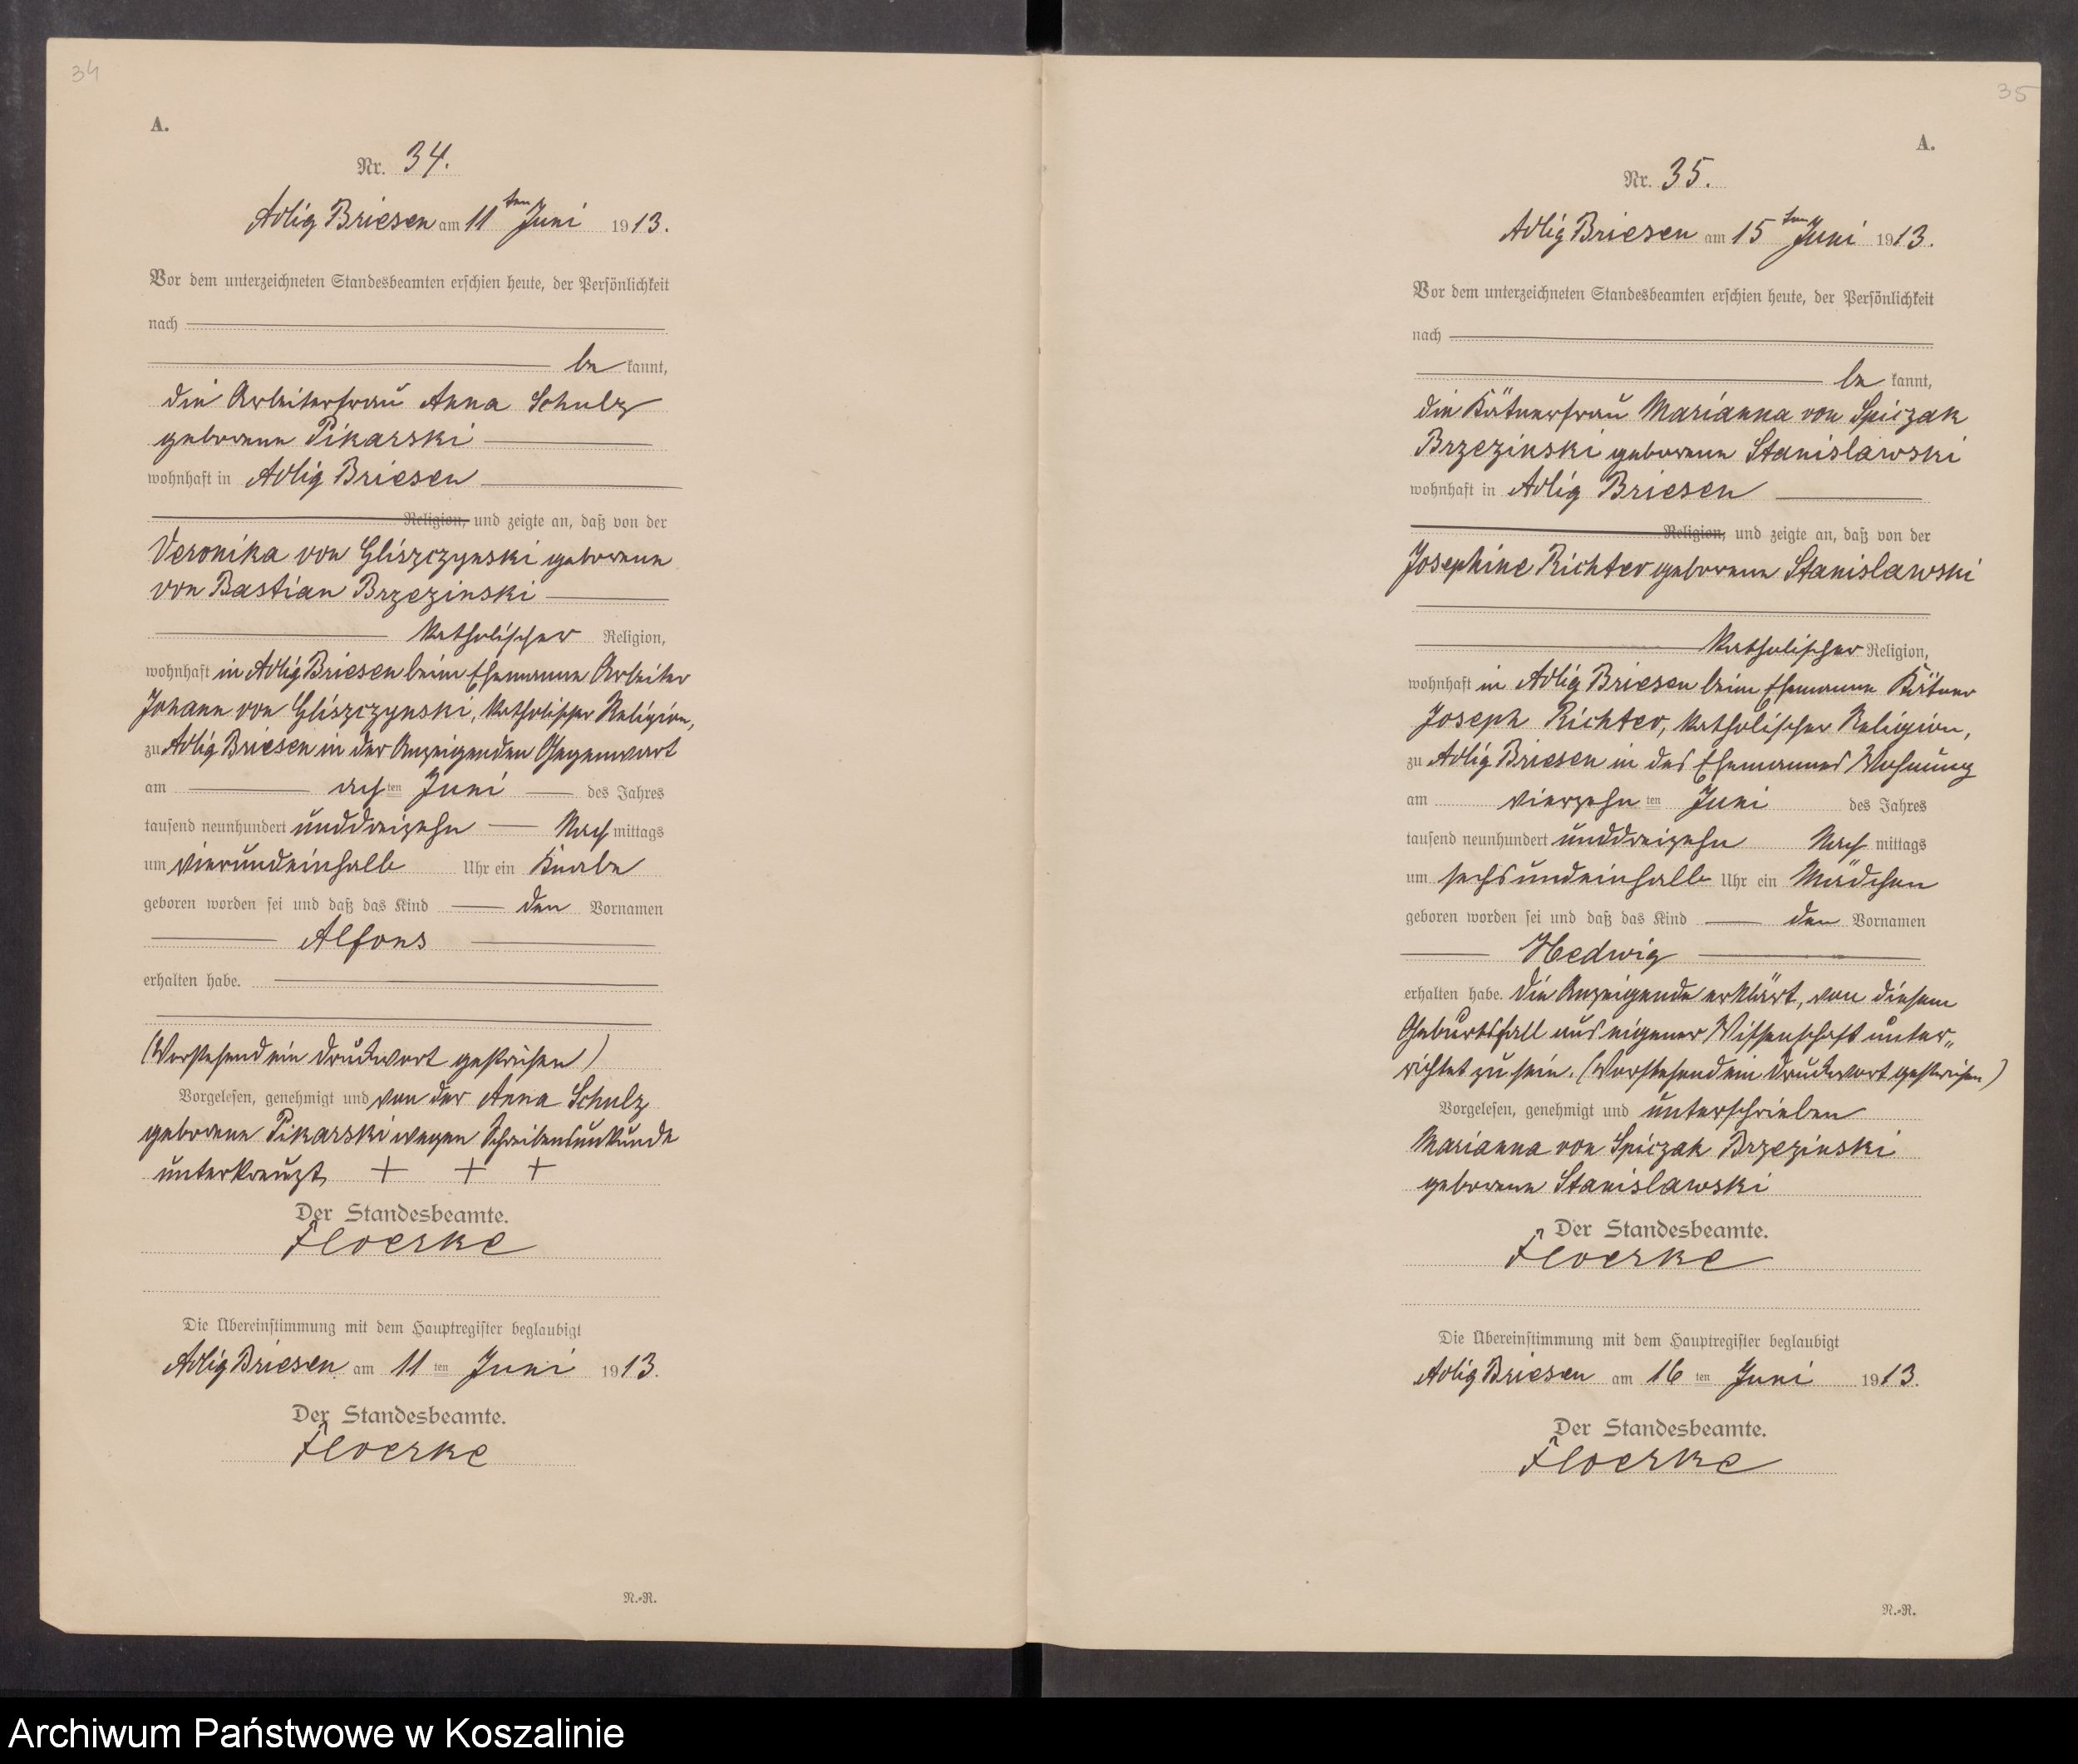 34
A.
Nr. 34.
Adlig Briesen am 11ten Juni 1913.
Vor dem unterzeichneten Standesbeamten erschien heute, der Persönlichkeit
nach
be kannt,
die Arbeiterfrau Anna Schulz
geborene Pikarski
wohnhaft in Adlig Briesen
Religion, und zeigte an, daß von der
Veronika von Gliszczynski geborene
von Bastian Brzezinski
katholischer Religion,
wohnhaft in Adlig Briesen beim Ehemanne Arbeiter
Johann von Gliszczynski, katholischer Religion,
zu Adlig Briesen in der Anzeigenden Gegenwart
am acht ten Juni des Jahres
tausend neunhundert unddreizehn Nach mittags
um vierundeinhalb Uhr ein Knabe
geboren worden sei und daß das Kind den Vornamen
Alfons
erhalten habe.
(Vorstehend ein Druckwort gestrichen)
Vorgelesen, genehmigt und von der Anna Schulz
geborene Pikarski wegen Schreibensunkunde
unterkreuzt + + +
Der Standesbeamte.
Floerke
Die Übereinstimmung mit dem Hauptregister beglaubigt
Adlig Briesen am 11 ten Juni 1913.
Der Standesbeamte.
Floerke
N.-R.
35
A.
Nr. 35.
Adlig Briesen am 15ten Juni 1913.
Vor dem unterzeichneten Standesbeamten erschien heute, der Persönlichkeit
nach
be kannt,
die Kätnerfrau Marianna von Spiczak
Brzezinski geborene Stanislawski
wohnhaft in Adlig Briesen
Religion, und zeigte an, daß von der
Josephine Richter geborene Stanislawski
katholischer Religion,
wohnhaft in Adlig Briesen beim Ehemanne Kätner
Joseph Richter, katholischer Religion,
zu Adlig Briesen in des Ehemannes Wohnung
am vierzehn ten Juni des Jahres
tausend neunhundert unddreizehn Nach mittags
um sechsundeinhalb Uhr ein Mädchen
geboren worden sei und daß das Kind den Vornamen
Hedwig
erhalten habe. Die Anzeigende erklärt, von diesem
Geburtsfall aus eigener Wissenschaft unter„
richtet zu sein. (Vorstehend ein Druckwort gestrichen)
Vorgelesen, genehmigt und unterschrieben
Marianna von Spiczak Brzezinski
geborene Stanislawski
Der Standesbeamte.
Floerke
Die Übereinstimmung mit dem Hauptregister beglaubigt
Adlig Briesen am 16 ten Juni 1913.
Der Standesbeamte.
Floerke
N.-R.
Archiwum Państwowe w Koszalinie